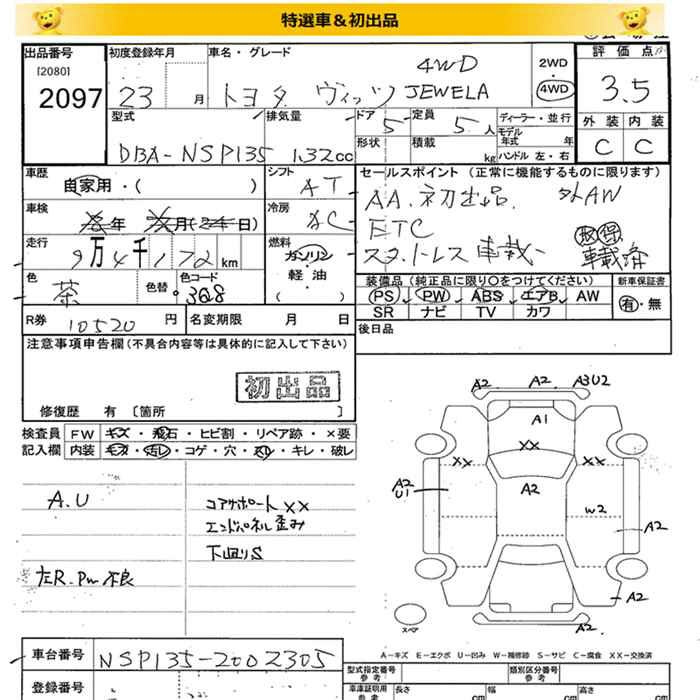 特選車＆初出品
出品番号 初度登録年月 車名・グレード 評価点
[2080]
2097 23 月 トヨタ ヴィッツ 4WD JEWELA 2WD・4WD 3.5
型式 排気量 ドア 定員 ディーラー・並行 外装 内装
DBA-NSP135 1.32cc 5 5人 モデル年式 年 C C
形状 積載 kg ハンドル 左・右
車歴 シフト セールスポイント（正常に機能するものに限ります）
自家用・( ) AT AA.初出品. 外AW
車検 冷房 ETC
年 月( 日) AC スタットレス車載 取保
走行 燃料 車載済
9万4千172km ガソリン
色 色替 色コード 軽油 装備品（純正品に限り○をつけてください） 新車保証書
茶 3G8 ( ) PS PW ABS エアB AW 有・無
SR ナビ TV カワ
R券 10520円 名変期限 月 日 後日品
注意事項申告欄（不具合内容等は具体的に記入して下さい）
初出品
修復歴 有 〔箇所 〕
検査員 FW キズ・飛石・ヒビ割・リペア跡・×要
記入欄 内装 キズ・汚レ・コゲ・穴・スレ・キレ・破レ
A.U コアサポートXX
エンドパネル歪み
下廻りS
左R.PW不良
A2 A2 A3U2
A1
XX XX XX
A2 U1 A2 W2 A2
A2
A2
スペア
A－キズ E－エクボ U－凹み W－補修跡 S－サビ C－腐食 XX－交換済
車台番号 NSP135-2002305
登録番号
型式指定番号 類別区分番号
車庫証明用参考 長さ cm 幅 cm 高さ cm